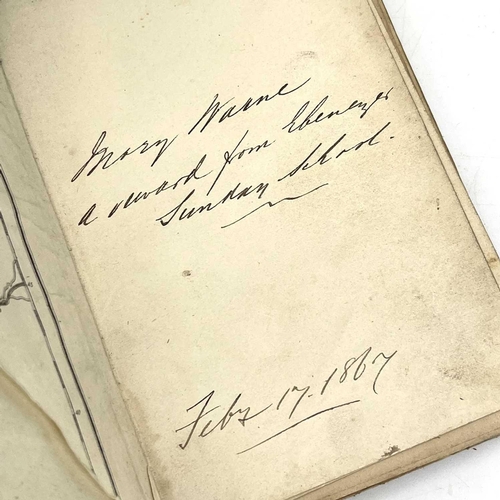 Mary Warne
a reward from Ebenezer
Sunday School.
Feby. 17. 1867